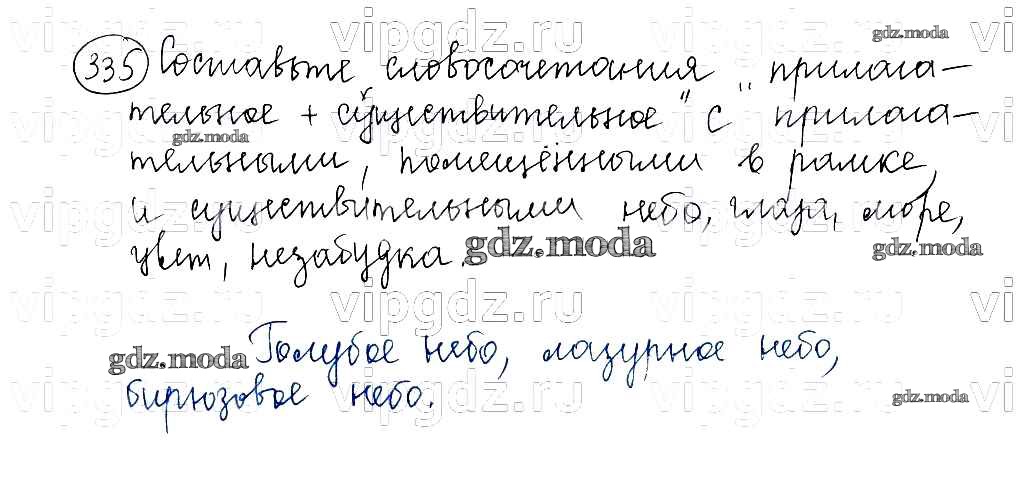 335 Составьте словосочетания "прилага-
тельное + существительное" с прилага-
тельными, помещёнными в рамке,
и существительными небо, глаза, море,
цвет, незабудка.
Голубое небо, лазурное небо,
бирюзовое небо.
vipgdz.ru
gdz.moda